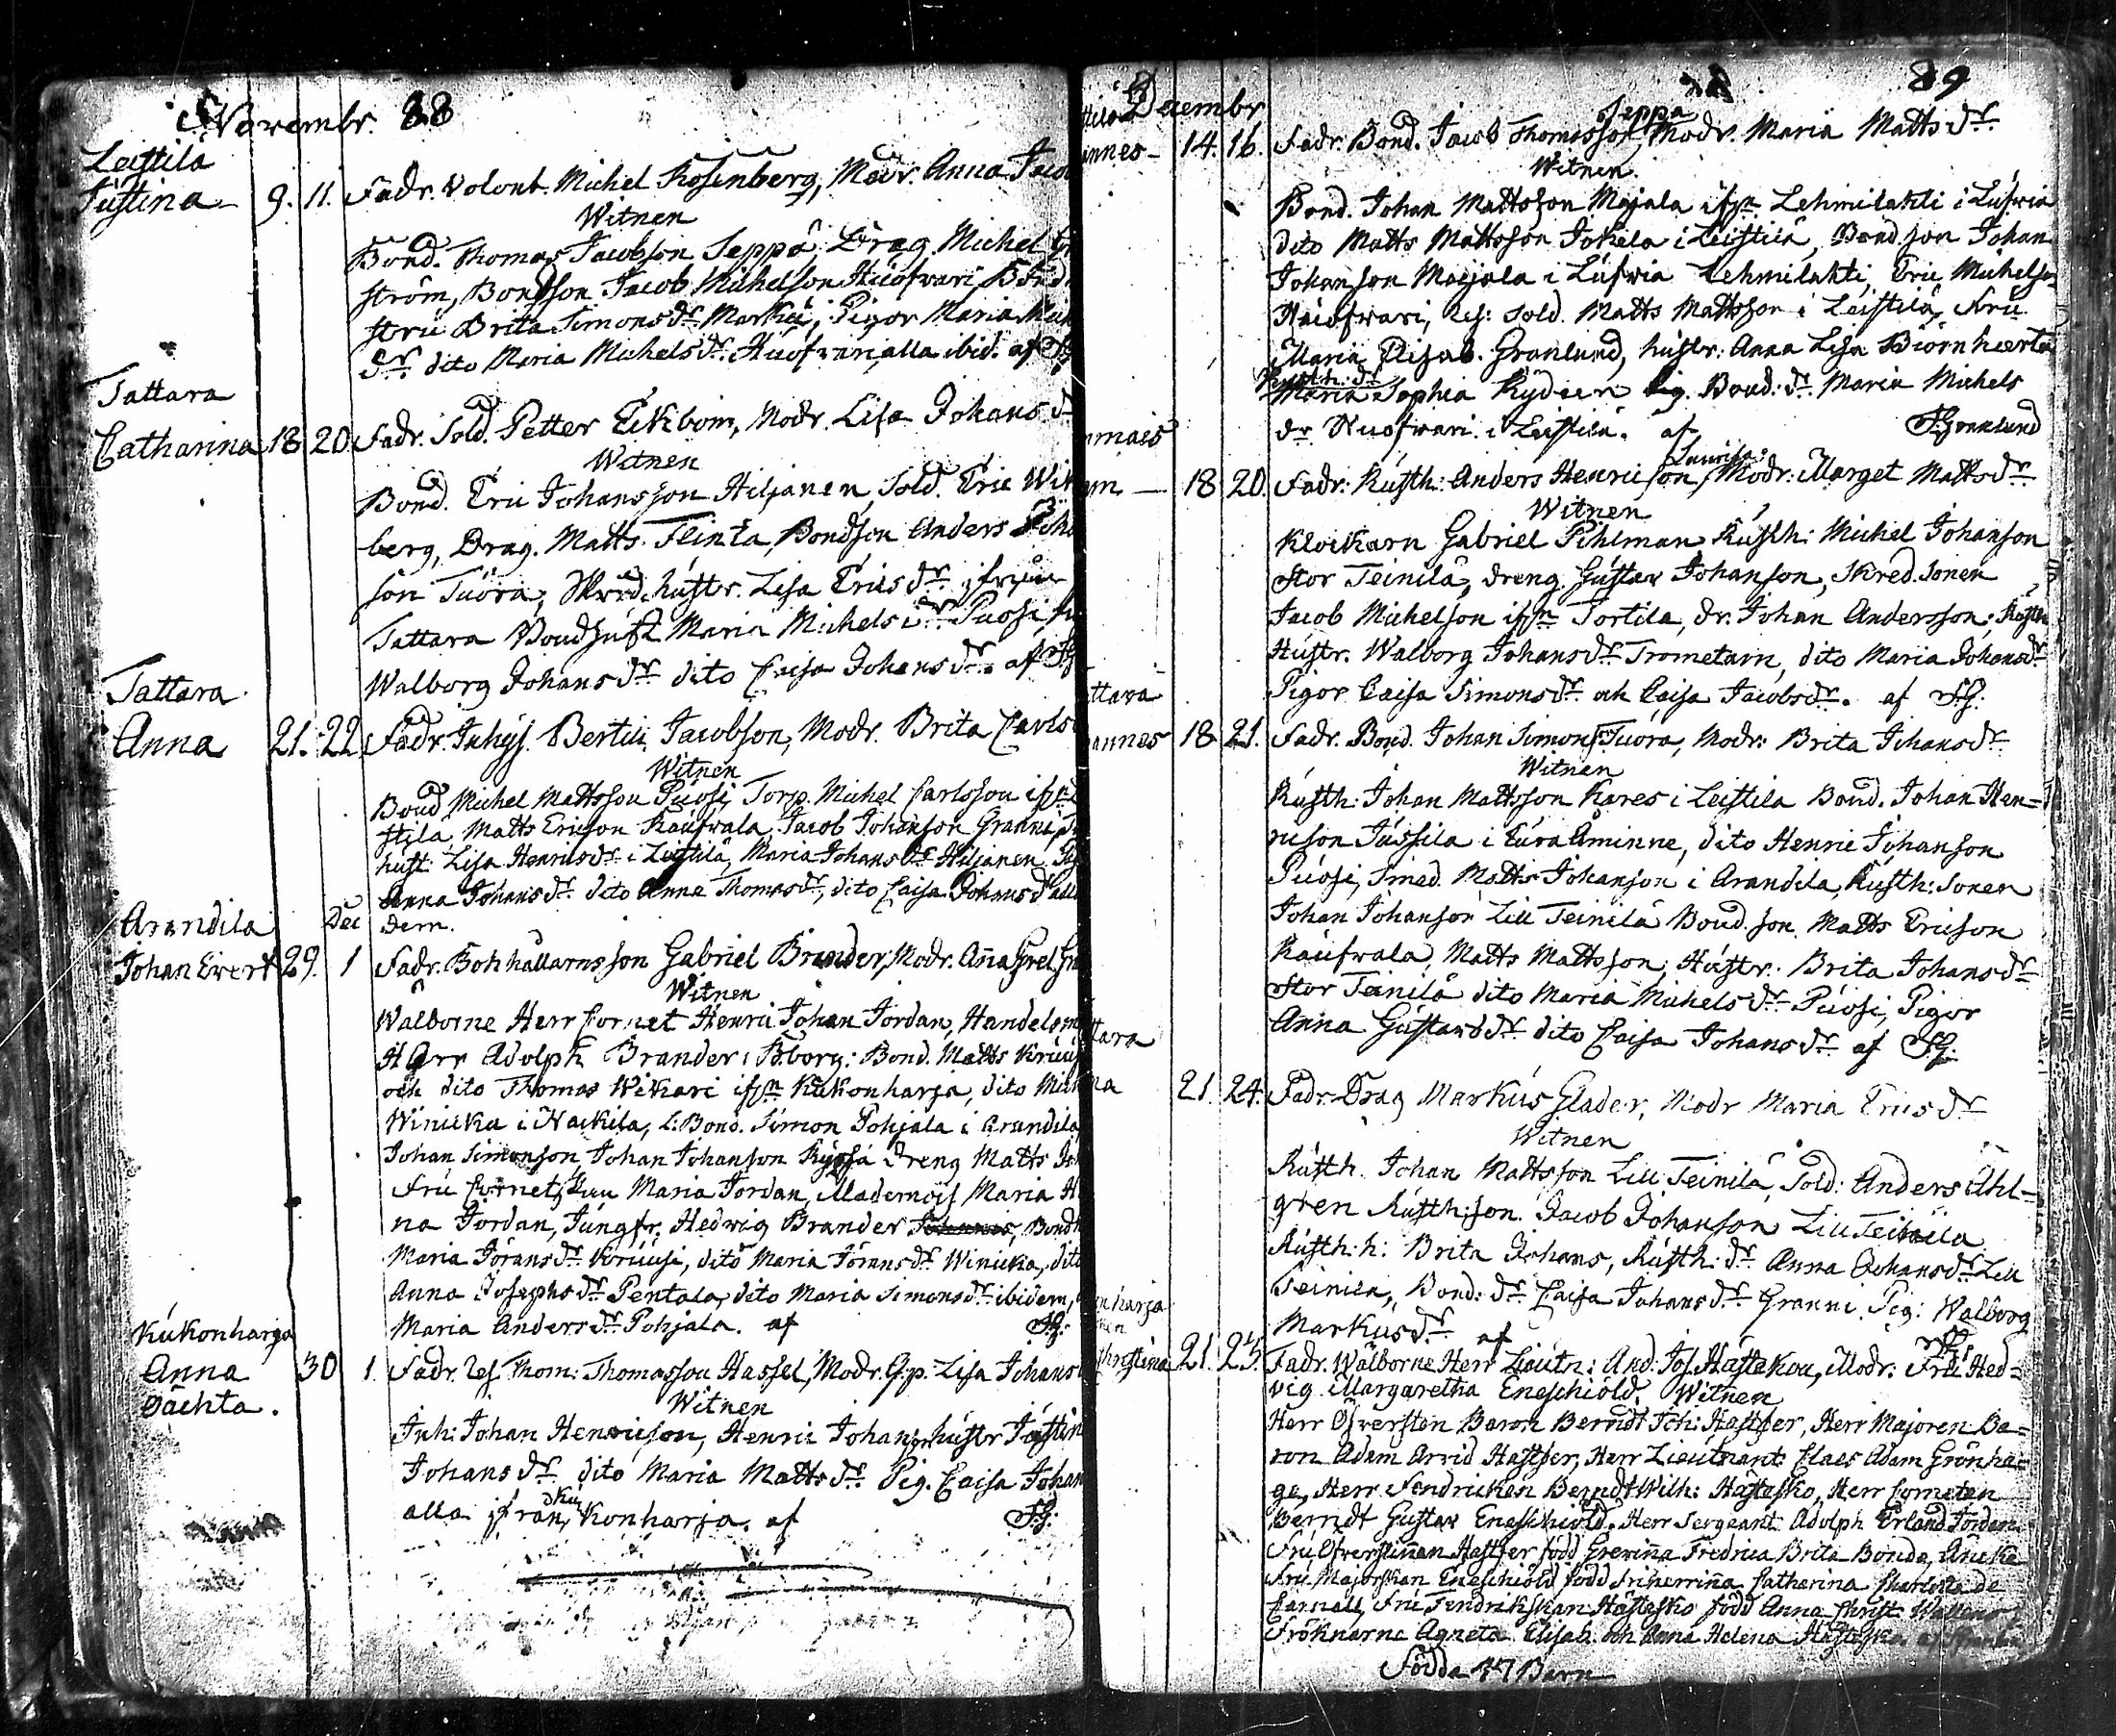 Novembr. 88
Leistilä
Justina 9. 11. Fadr. Volont. Michel Rosenberg, Modr. Anna Jacob
Witnen
Bond. Thomas Jacobson Seppä, Drag. Michel
ström, Bondson Jacob Michelson Huofwari, Bond
stru Brita Simons dr Markú, Pigor Maria
dr dito Maria Michels dr Huofwari, alla ibid. af
Tattara
Catharina 18 20. Fadr. Sold. Petter Ekbom, Modr. Lisa Johans d
Witnen
Bond. Eric Johansson Hiljanen, Sold. Eric Wik
berg, Drag. Matts Flinta, Bondson Anders Joha
son Tuora, Skred. hustr. Lisa Erics dr ifrån
Tattara Bondhust Maria Michels dr Puosi,
Walborg Johans dr dito Caisa Johans dr. af
Tattara
Anna 21. 22. Fadr. Inhys. Bertil Jacobson, Modr. Brita Carls
Witnen
Bond Michel Mattsson Puosi, Torp. Michel Carlsson ifrn
stila, Matts Ericson Kaufwala, Jacob Johanson Granni,
hust. Lisa Henrics dr i Leistilä, Maria Johans dr Hiljanen
Anna Johans dr. dito Anna Thomas dr, dito Caisa Johans dr
Arandila Dec dem.
Johan Evert 29. 1 Fadr. Bokhållarns son Gabriel Brander, Modr. Anna Gret.
Witnen
Walborne Herr Cornet Henric Johan Jordan, Handelsm
Herr Adolph Brander i Bborg: Bond. Matts Kruus
och dito Thomas Wikari ifrn Kukonharja, dito Mich
Winikka i Nackila, L: Bond. Simon Pohjala i Arandila,
Johan Simonson, Johan Johanson Kyssä dreng Matts
Fru Cornetskan Maria Jordan, Mademois Maria
na Jordan, Jungfr. Hedwig Brander, Bondh
Maria Jörans dr Kruusi, dito Maria Jörans dr Winicka, dito
Anna Josephs dr Pentala, dito Maria Simons dr ibidem,
Maria Anders dr Pohjala. af
Kukonharja
Anna 30 1. Fadr. Thom: Thomasson Hassel, Modr. Q:p. Lisa Johans
oächta. Witnen
Inh: Johan Henricson, Henric Johanson hustr Justin
Johans dr dito Maria Matts dr Pig. Caisa Johan
alla ifrån Kukonharja. af
Decembr 89
annes 14. 16. Fadr. Bond. Jacob Thomasson Seppä, Modr. Maria Matts dr
Witnen
Bond. Johan Mattsson Majala ifrn Lehmilahti i Lufwia
dito Matts Mattsson Jokela i Leistilä, Bond. son Johan
Johanson Maijala i Lufwia Lehmilahti, Eric Michelson
Huofwari, Sold. Matts Mattsson i Leistilä, Fru
Maria Elisab. Granlund, hustr: Anna Lisa Biörnhierta
Maria Sophia Rydeen Bond: dr. Maria Michels
dr Huofwari i Leistilä. af Granlund
mmais
18 20. Fadr: Rusth: Anders Henricson, Modr: Marget Matts dr
Witnen
Klockarn Gabriel Pihlman Rusth: Michel Johanson
Stor Teinilä, dreng Gustav Johanson, Skred. Sonen
Jacob Michelson ifrn Tortila, dr. Johan Andersson, Rusth
Hustr. Walborg Johans dr Trometarn, dito Maria Johans dr
Pigor Caisa Simons dr och Caisa Jacobs dr. af
ttara
annes 18 21. Fadr. Bond. Johan Simons Tuora, Modr: Brita Johans dr
Witnen
Rusth: Johan Mattsson Kares i Leistila Bond. Johan Hen=
ricson Jussila i Eura Åminne, dito Henric Johanson
Puosi, Smed. Matts Johanson i Arandila, Rusth: Sonen
Johan Johanson Lill Teinilä Bond. son Matts Ericson
Kaufwala, Matts Mattsson, Hustr: Brita Johans dr
Stor Teinilä dito Maria Michels dr Puosi, Pigor
Anna Gustavs dr dito Caisa Johans dr af
tara
na 21. 24. Fadr. Drag Markus Glader, Modr Maria Erics dr
Witnen
Rusth. Johan Mattsson Lill Teinilä, Sold: Anders Ahl=
gren Rusth: son. Jacob Johanson Lill Teinilä
Rusth: h: Brita Johans, Rusth: dr Anna Johans dr Lill
Teinila, Bond: dr Caisa Johans dr Granni. Pig: Walborg
Markus dr af
harja
Christina 21. 25. Fadr. Wälborne Herr Lieutn: And: Jos. Hästekou, Modr: Fru Hed=
vig Margaretha Eneschiöld. Witnen
Herr Öfversten Baron Berndt Joh: Hastfer, Herr Majoren Ba=
ron Adam Arvid Hastfer, Herr Lieutnant Claes Adam Grönha=
ge, Herr Fendricken Berndt Wilh: Hästesko, Herr Corneten
Berndt Gustav Eneschiöld, Herr Sergeant Adolph Erland Jordan
Fru Öfverstinnan Hastfer född Grevinna Fredrica Brita Bonde, Encke
Fru Majorskan Eneschiöld född friherrinna Catharina Charlotta de
Carnall, Fru Fendrikskan Hästesko född Anna Christ.
Fröknarne Agneta Elisab. och Anna Helena Hästesko.
Födde 37 Barn